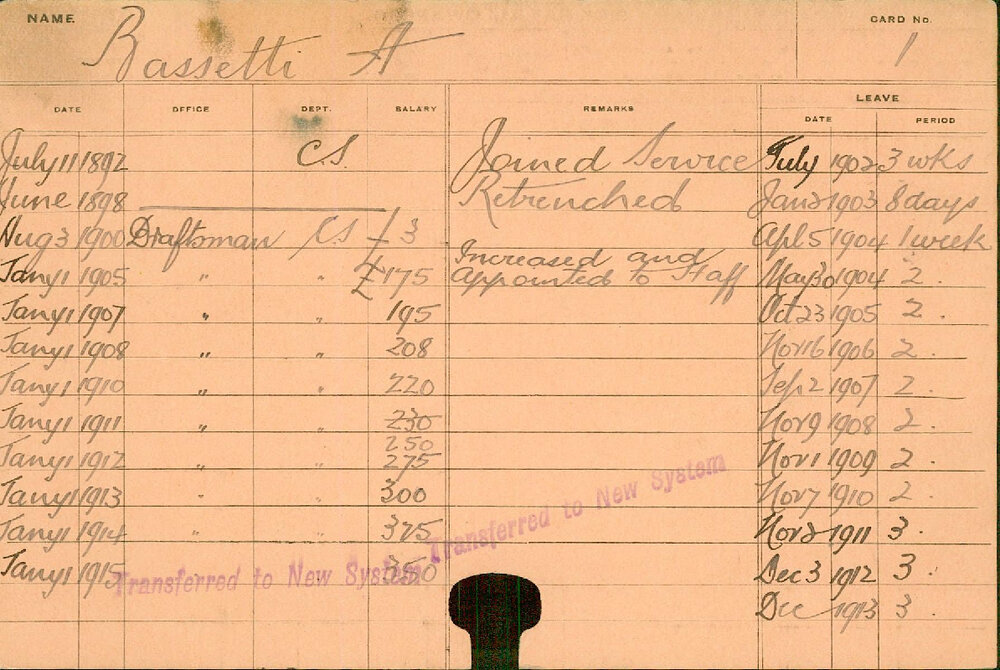 NAME Bassetti A CARD No. 1
DATE OFFICE DEPT. SALARY REMARKS LEAVE
DATE PERIOD
July 11 1892 C.S Joined Service July 1902 3 wks
June 1898 Retrenched Jan 2 1903 8 days
Aug 3 1900 Draftsman C.S £ 3 Apl 5 1904 1 week
Jany 1 1905 " " £175 Increased and appointed to Staff May 30 1904 2 .
Jany 1 1907 " " 195 Oct 23 1905 2 .
Jany 1 1908 " " 208 Nov 16 1906 2 .
Jany 1 1910 " " 220 Sep 2 1907 2 .
Jany 1 1911 " " 230 Nov 9 1908 2 .
250
Jany 1 1912 " " 275 Nov 1 1909 2 .
Jany 1 1913 " " 300 Nov 7 1910 2 .
Jany 1 1914 " " 325 Nov 2 1911 3 .
Transferred to New System
Jany 1 1915 350 Dec 3 1912 3 .
Transferred to New System
Dec 1913 3 .